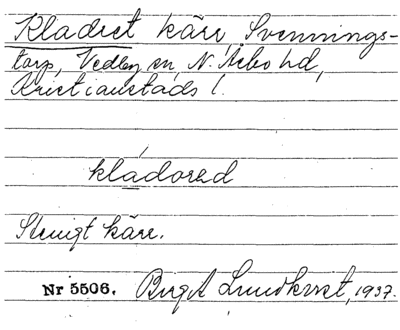 Kladret kärr, Svennings-
torp, Vedby sn, N. Åsbo hd,
Kristianstads l.
kládored
Stenigt kärr.
Nr 5506. Birgit Lundkvist, 1937.